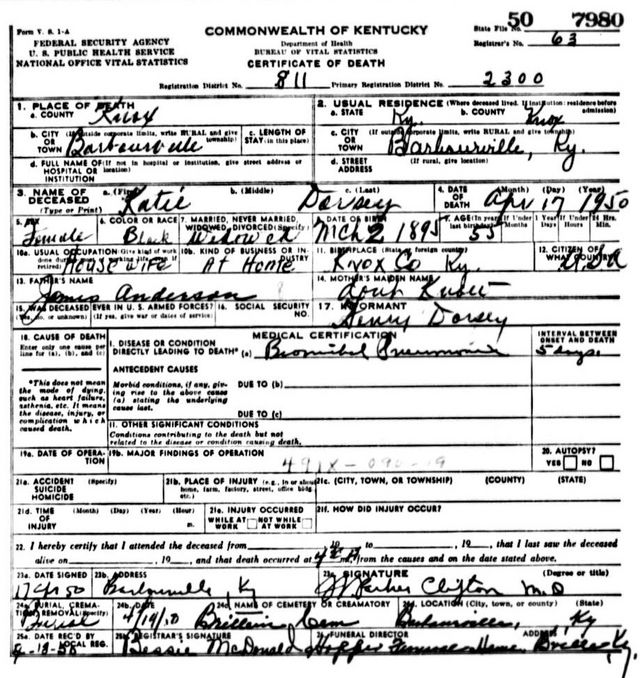 Form V. S. 1-A
FEDERAL SECURITY AGENCY
U. S. PUBLIC HEALTH SERVICE
NATIONAL OFFICE VITAL STATISTICS
COMMONWEALTH OF KENTUCKY
Department of Health
BUREAU OF VITAL STATISTICS
CERTIFICATE OF DEATH
State File No. 50 7980
Registrar's No. 63
Registration District No. 811 Primary Registration District No. 2300
1. PLACE OF DEATH
a. COUNTY Knox
2. USUAL RESIDENCE (Where deceased lived. If institution: residence before admission)
a. STATE Ky. b. COUNTY Knox
b. CITY (If outside corporate limits, write RURAL and give township) OR TOWN Barbourville
c. LENGTH OF STAY (in this place)
c. CITY (If outside corporate limits, write RURAL and give township) OR TOWN Barbourville, Ky.
d. FULL NAME OF (If not in hospital or institution, give street address or location) HOSPITAL OR INSTITUTION
d. STREET ADDRESS (If rural, give location)
3. NAME OF DECEASED (Type or Print)
a. (First) Katie b. (Middle) c. (Last) Dorsey
4. DATE OF DEATH (Month) (Day) (Year) Apr 17 1950
5. SEX Female
6. COLOR OR RACE Black
7. MARRIED, NEVER MARRIED, WIDOWED, DIVORCED (Specify) Widowed
8. DATE OF BIRTH Mch 2 1895
9. AGE (In years last birthday) 55 If Under 1 Year If Under 24 Hrs.
10a. USUAL OCCUPATION (Give kind of work done during most of working life, even if retired) House Wife
10b. KIND OF BUSINESS OR INDUSTRY At Home
11. BIRTHPLACE (State or foreign country) Knox Co Ky.
12. CITIZEN OF WHAT COUNTRY? USA
13. FATHER'S NAME James Anderson
14. MOTHER'S MAIDEN NAME
15. WAS DECEASED EVER IN U.S. ARMED FORCES? (Yes, no, or unknown) (If yes, give war or dates of service)
16. SOCIAL SECURITY NO.
17. INFORMANT Henry Dorsey
18. CAUSE OF DEATH
Enter only one cause per line for (a), (b), and (c)
MEDICAL CERTIFICATION
INTERVAL BETWEEN ONSET AND DEATH
I. DISEASE OR CONDITION DIRECTLY LEADING TO DEATH* (a) Pneumonia 5 days.
*This does not mean the mode of dying, such as heart failure, asthenia, etc. It means the disease, injury, or complication which caused death.
ANTECEDENT CAUSES
Morbid conditions, if any, giving rise to the above cause (a) stating the underlying cause last.
DUE TO (b)
DUE TO (c)
II. OTHER SIGNIFICANT CONDITIONS
Conditions contributing to the death but not related to the disease or condition causing death.
19a. DATE OF OPERATION
19b. MAJOR FINDINGS OF OPERATION
20. AUTOPSY? YES NO
21a. ACCIDENT SUICIDE HOMICIDE (Specify)
21b. PLACE OF INJURY (e.g., in or about home, farm, factory, street, office bldg., etc.)
21c. (CITY, TOWN, OR TOWNSHIP) (COUNTY) (STATE)
21d. TIME OF INJURY (Month) (Day) (Year) (Hour) m.
21e. INJURY OCCURRED WHILE AT WORK NOT WHILE AT WORK
21f. HOW DID INJURY OCCUR?
22. I hereby certify that I attended the deceased from 19 to , 19 , that I last saw the deceased
alive on , 19 , and that death occurred at m., from the causes and on the date stated above.
23a. DATE SIGNED
23b. ADDRESS Barbourville, Ky
23c. SIGNATURE (Degree or title) Parker Clifton M.D
24a. BURIAL, CREMATION, REMOVAL (Specify) Burial
24b. DATE 4/19/50
24c. NAME OF CEMETERY OR CREMATORY Brittain Cem
24d. LOCATION (City, town, or county) (State) Barbourville, Ky
25a. DATE REC'D BY LOCAL REG.
25b. REGISTRAR'S SIGNATURE Bessie McDonald
26. FUNERAL DIRECTOR ADDRESS Hopper Funeral Home